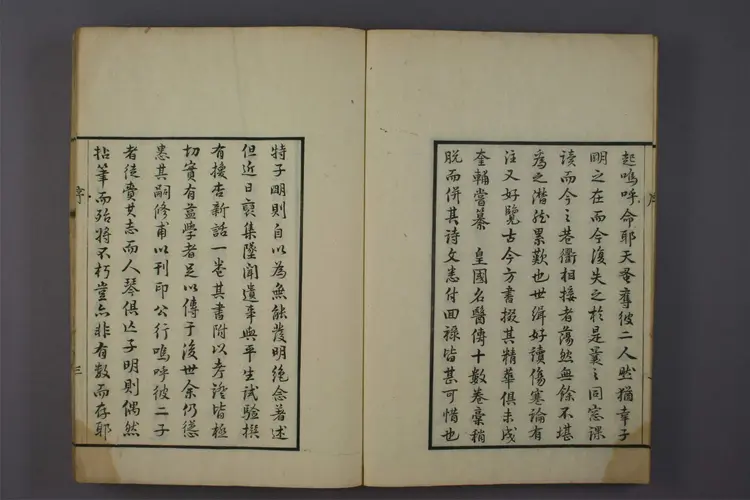 起嗚呼命耶天蚤奪彼二人然猶幸子
明之在而今復失之於是曩之同窓課
讀而今之巷衕相接者蕩然無餘不堪
為之潛然累歎也世緝好讀傷寒論有
注又好覽古今方書掇其精華俱未成
奎輔嘗纂 皇國名醫傳十數卷稾稍
脫而併其詩文悉付回祿皆甚可惜也
特子明則自以為無能發明絕念著述
但近日裒集墜聞遺事與平生試驗撰
有援杏新話一卷其書附以考證皆極
切實有益學者足以傳于後世余仍慫
恿其嗣修甫以刊印公行嗚呼彼二子
者徒賚其志而人琴俱亡子明則偶然
拈筆而殆將不朽豈亦非有數而存耶
序
三
序